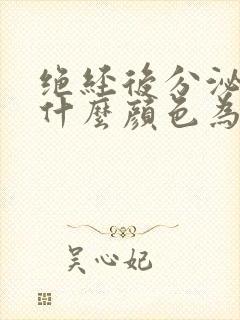 绝経後分泌
什麼顔色為
吴心妃